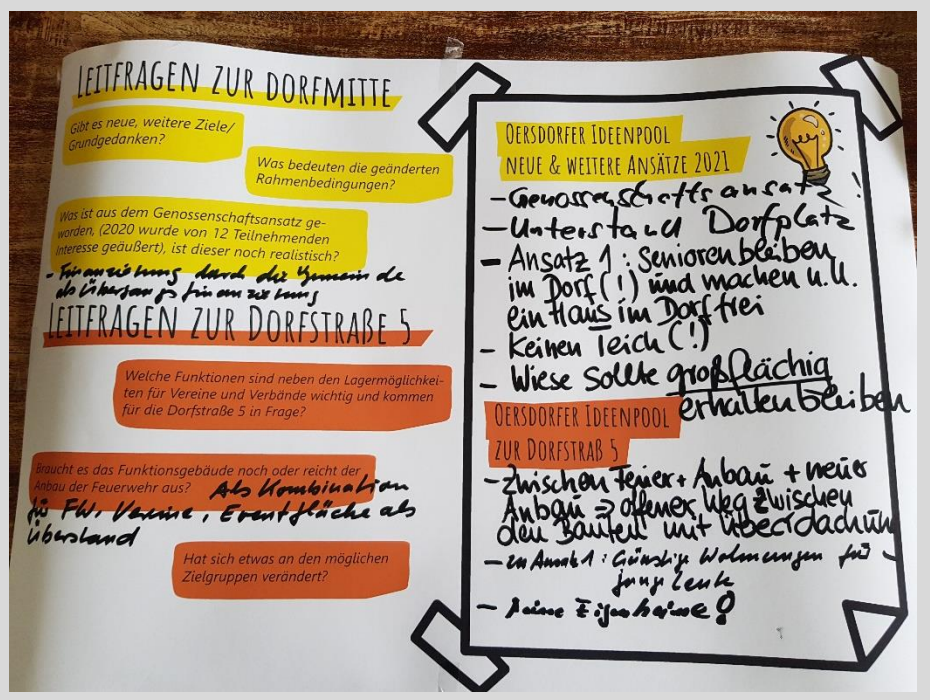 LEITFRAGEN ZUR DORFMITTE
Gibt es neue, weitere Ziele/
Grundgedanken?
Was bedeuten die geänderten
Rahmenbedingungen?
Was ist aus dem Genossenschaftsansatz ge-
worden, (2020 wurde von 12 Teilnehmenden
Interesse geäußert), ist dieser noch realistisch?
- Finanzierung durch die Gemeinde
als Übergangsfinanzierung
LEITFRAGEN ZUR DORFSTRAßE 5
Welche Funktionen sind neben den Lagermöglichkei-
ten für Vereine und Verbände wichtig und kommen
für die Dorfstraße 5 in Frage?
Braucht es das Funktionsgebäude noch oder reicht der
Anbau der Feuerwehr aus? Als Kombination
für FW, Vereine, Eventfläche als
Überstand
Hat sich etwas an den möglichen
Zielgruppen verändert?
OERSDORFER IDEENPOOL
NEUE & WEITERE ANSÄTZE 2021
- Genossenschaftsansatz!
- Unterstand Dorfplatz
- Ansatz 1: Senioren bleiben
im Dorf (!) und machen u.U.
ein Haus im Dorf frei
- Keinen Teich (!)
- Wiese sollte großflächig
erhalten bleiben
OERSDORFER IDEENPOOL
ZUR DORFSTRAß 5
- Zwischen Feuer + Anbau + neuer
Anbau => offener Weg zwischen
den Bauten mit Überdachung
- zu Ansatz 1: Günstige Wohnungen für
junge Leute
- Keine Eigenheime!